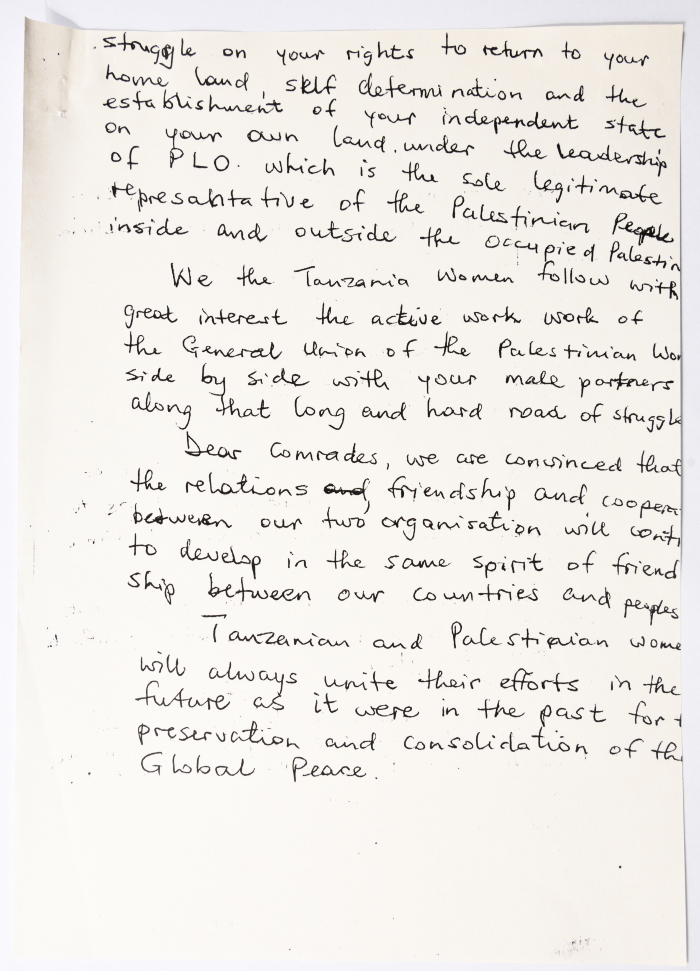 struggle on your rights to return to your
home land, self determination and the
establishment of your independent state
on your own land. under the leadership
of PLO. which is the sole legitimate
represantative of the Palestinian People
inside and outside the occupied Palestin
We the Tanzania Women follow with
great interest the active work work of
the General Union of the Palestinian Wo
side by side with your male partners
along that long and hard road of struggle
Dear Comrades, we are convinced that
the relations and friendship and coopera
between our two organisation will conti
to develop in the same spirit of friend
ship between our countries and peoples
Tanzanian and Palestinian wome
will always unite their efforts in the
future as it were in the past for t
preservation and consolidation of th
Global Peace.